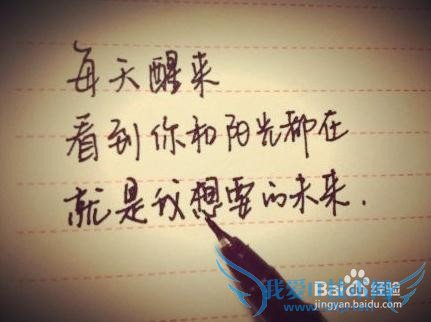 每天醒来
看到你和阳光都在
就是我想要的未来.
Baidu 经验
jingyan.baidu.com